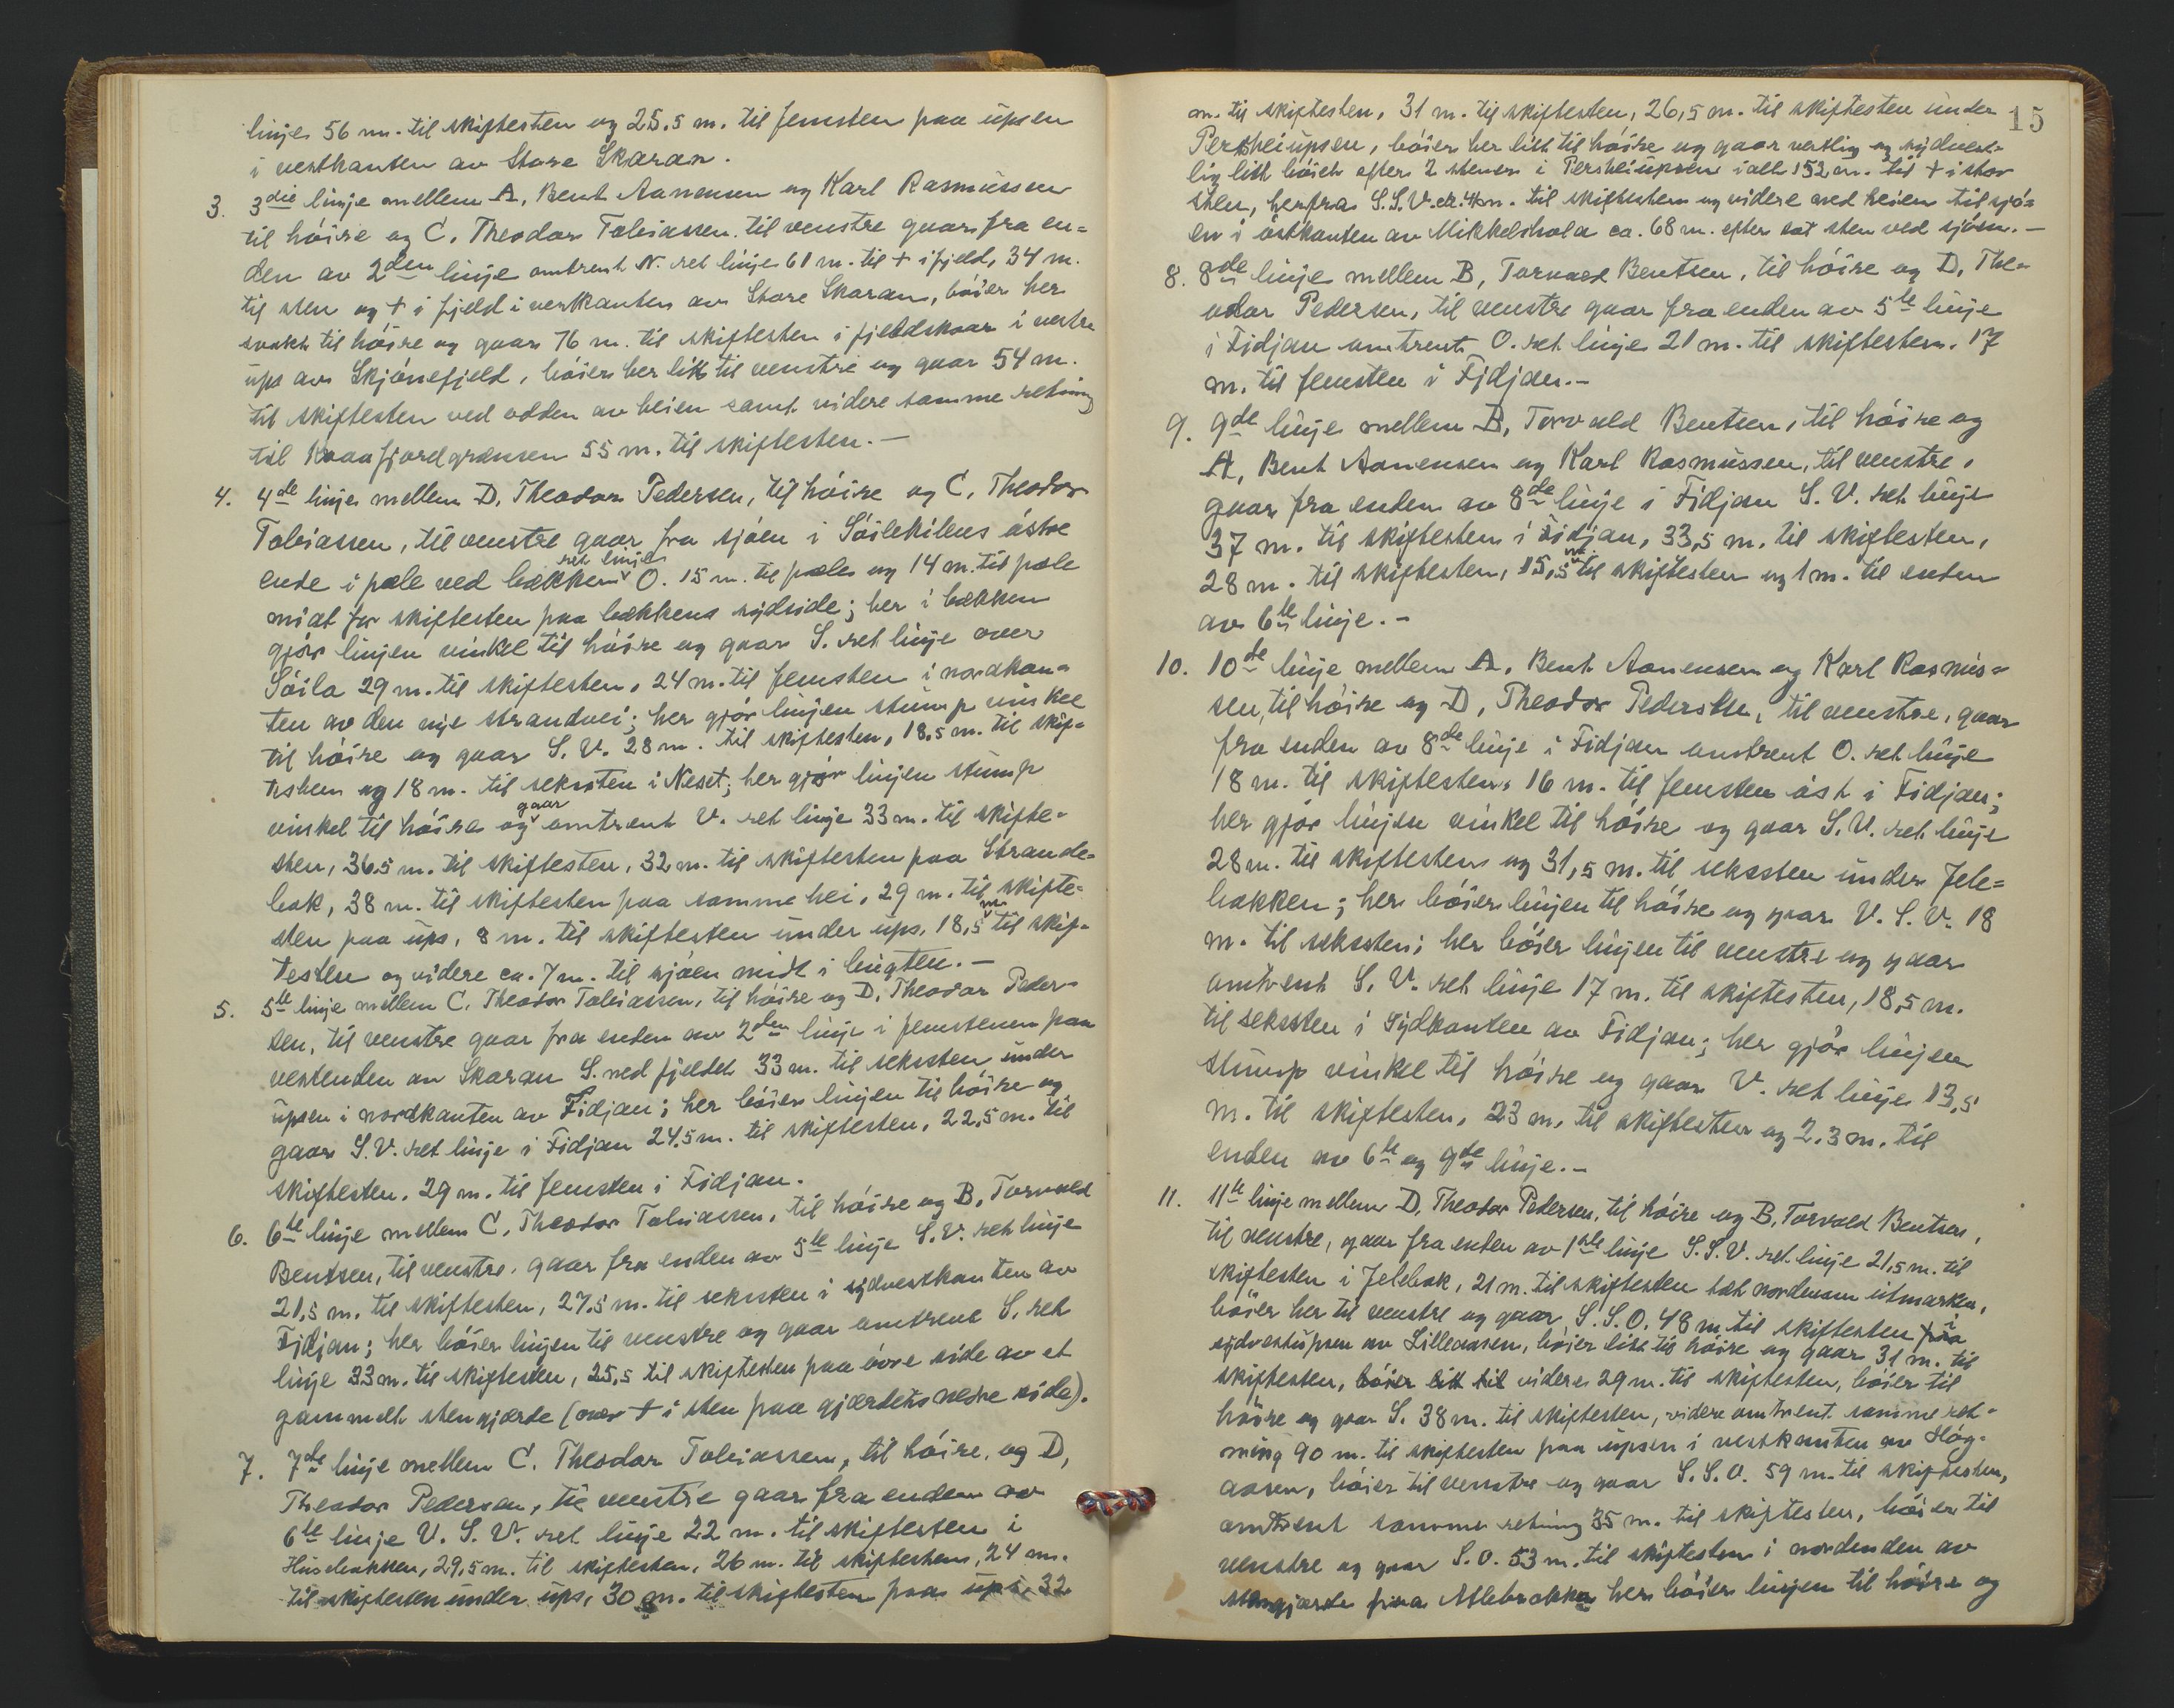 linje 56 m. til skiftesten og 25,5 m. til femsten paa upsen
i vestkanten av Store Skaran.
3. 3die linje mellem A, Bent Aanensen og Karl Rasmussen
til høire og C. Theodor Tobiassen til venstre gaar fra en=
den av 2den linje omtrent N. ret linje 61 m. til + i fjeld, 34 m.
til sten og + i fjeld i vestkanten av Store Skaran, bøier her
svakt til høire og gaar 76 m. til skiftesten i fjeldskaar i vestre
ups av Skjønefjeld, bøier her litt til venstre og gaar 54 m.
til skiftesten ved odden av heien samt videre samme retning
til Kaafjordgrænsen 55 m. til skiftesten.—
4. 4de linje mellem D, Theodor Pedersen, til høire og C, Theodor
Tobiassen, til venstre gaar fra sjøen i Søilekilens østre
ende i pæle ved bækken ret linje O. 15 m. til pæle og 14 m. til pæle
midt for skiftesten paa bækkens sydside; her i bækken
gjør linjen vinkel til høire og gaar S. ret linje over
Søila 29 m. til skiftesten, 24 m. til femsten i nordkan=
ten av den nye strandvei; her gjør linjen stump vinkel
til høire og gaar S. V. 28 m. til skiftesten, 18,5 m. til skif=
testen og 18 m. til seksten i Neset; her gjør linjen stump
vinkel til høire og gaar omtrent V. ret linje 33 m. til skifte=
sten, 36,5 m. til skiftesten, 32 m. til skiftesten paa Strande=
bak, 38 m. til skiftesten paa samme hei, 29 m. til skifte=
sten paa ups, 8 m. til skiftesten under ups, 18,5 m. til skif=
testen og videre ca. 7 m. til sjøen midt i bugten.—
5. 5te linje mellem C. Theodor Tobiassen, til høire og D. Theodor Peder=
sen, til venstre gaar fra enden av 2den linje i femstenen paa
vestenden av Skaran S. ned fjeldet 33 m. til seksten under
upsen i nordkanten av Fidjan; her bøier linjen til høire og
gaar S.V. ret linje i Fidjan 24,5 m. til skiftesten, 22,5 m. til
skiftesten, 29 m. til femsten i Fidjan.
6. 6te linje mellem C, Theodor Tobiassen, til høire og B, Torvald
Bentsen, til venstre, gaar fra enden av 5te linje S.V. ret linje
21,5 m. til skiftesten, 27,5 m. til seksten i sydvestkanten av
Fidjan; her bøier linjen til venstre og gaar omtrent S. ret
linje 33 m. til skiftesten, 25,5 til skiftesten paa øvre side av et
gammelt stengjærde (over + i sten paa gjærdets nedre side).
7. 7de linje mellem C. Theodor Tobiassen, til høire, og D,
Theodor Pedersen, til venstre gaar fra enden av
6te linje V. S. V. ret linje 22 m. til skiftesten i
Husebakken, 29,5 m. til skiftesten, 26 m. til skiftesten, 24 m.
til skiftesten under ups, 30 m. til skiftesten paa ups, 32
15
m. til skiftesten, 31 m. til skiftesten, 26,5 m. til skiftesten under
Persheiupsen, bøier her litt til høire og gaar vestlig og sydvest=
lig litt bøiet efter 2 stener i Persheiupsen ialt 152 m. til + i stor
sten, herfra S.S.V. ca. 4 m. til skiftesten og videre ned heien til sjø=
en i østkanten av Mikkelshola ca. 68 m. efter sat sten ved sjøen.—
8. 8de linje mellem B, Torvald Bentsen, til høire og D, The=
odor Pedersen, til venstre gaar fra enden av 5te linje
i Fidjan omtrent O. ret linje 21 m. til skiftesten, 17
m. til femsten i Fidjan.—
9. 9de linje mellem B, Torvald Bentsen, til høire og
A, Bent Aanensen og Karl Rasmussen, til venstre,
gaar fra enden av 8de linje i Fidjan S. V. ret linje
37 m. til skiftesten i Fidjan, 33,5 m. til skiftesten,
28 m. til skiftesten, 15,5 m. til skiftesten og 1 m. til enden
av 6te linje.—
10. 10de linje mellem A, Bent Aanensen og Karl Rasmus=
sen, til høire og D, Theodor Pedersen, til venstre, gaar
fra enden av 8de linje i Fidjan omtrent O. ret linje
18 m. til skiftesten, 16 m. til femsten øst i Fidjan;
her gjør linjen vinkel til høire og gaar S.V. ret linje
28 m. til skiftesten og 31,5 m. til seksten under Jele=
bakken; her bøier linjen til høire og gaar V. S. V. 18
m. til seksten; her bøier linjen til venstre og gaar
omtrent S. V. ret linje 17 m. til skiftesten, 18,5 m.
til seksten i Sydkanten av Fidjan; her gjør linjen
stump vinkel til høire og gaar V. ret linje 13,5
m. til skiftesten, 23 m. til skiftesten og 2,3 m. til
enden av 6te og 9de linje.—
11. 11te linje mellem D. Theodor Pedersen, til høire og B, Torvald Bentsen,
til venstre, gaar fra enden av 1ste linje S.S.V. ret linje 21,5 m. til
skiftesten i Jelebak, 21 m. til skiftesten tæt nordenom utmarken,
bøier her til venstre og gaar S. S. O. 48 m. til skiftesten paa i
sydvestupsen av Lilleaasen, bøier litt til høire og gaar 31 m. til
skiftesten, bøier litt til videre 29 m. til skiftesten, bøier til
høire og gaar S. 38 m. til skiftesten, videre omtrent samme ret=
ning 90 m. til skiftesten paa upsen i vestkanten av Høg=
aasen, bøier til venstre og gaar S.S.O. 59 m. til skiftesten,
omtrent samme retning 35 m. til skiftesten, bøier til
venstre og gaar S.O. 53 m. til skiftesten i nordenden av
stengjærde paa Atlebrakka her bøier linjen til høire og